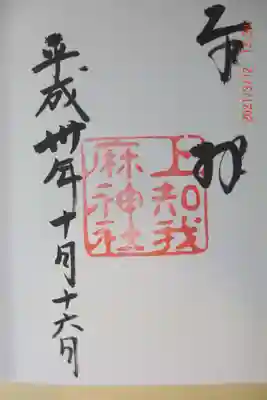 奉拝
上知我
麻神社
平成卅年十月十六日
2021/3/12